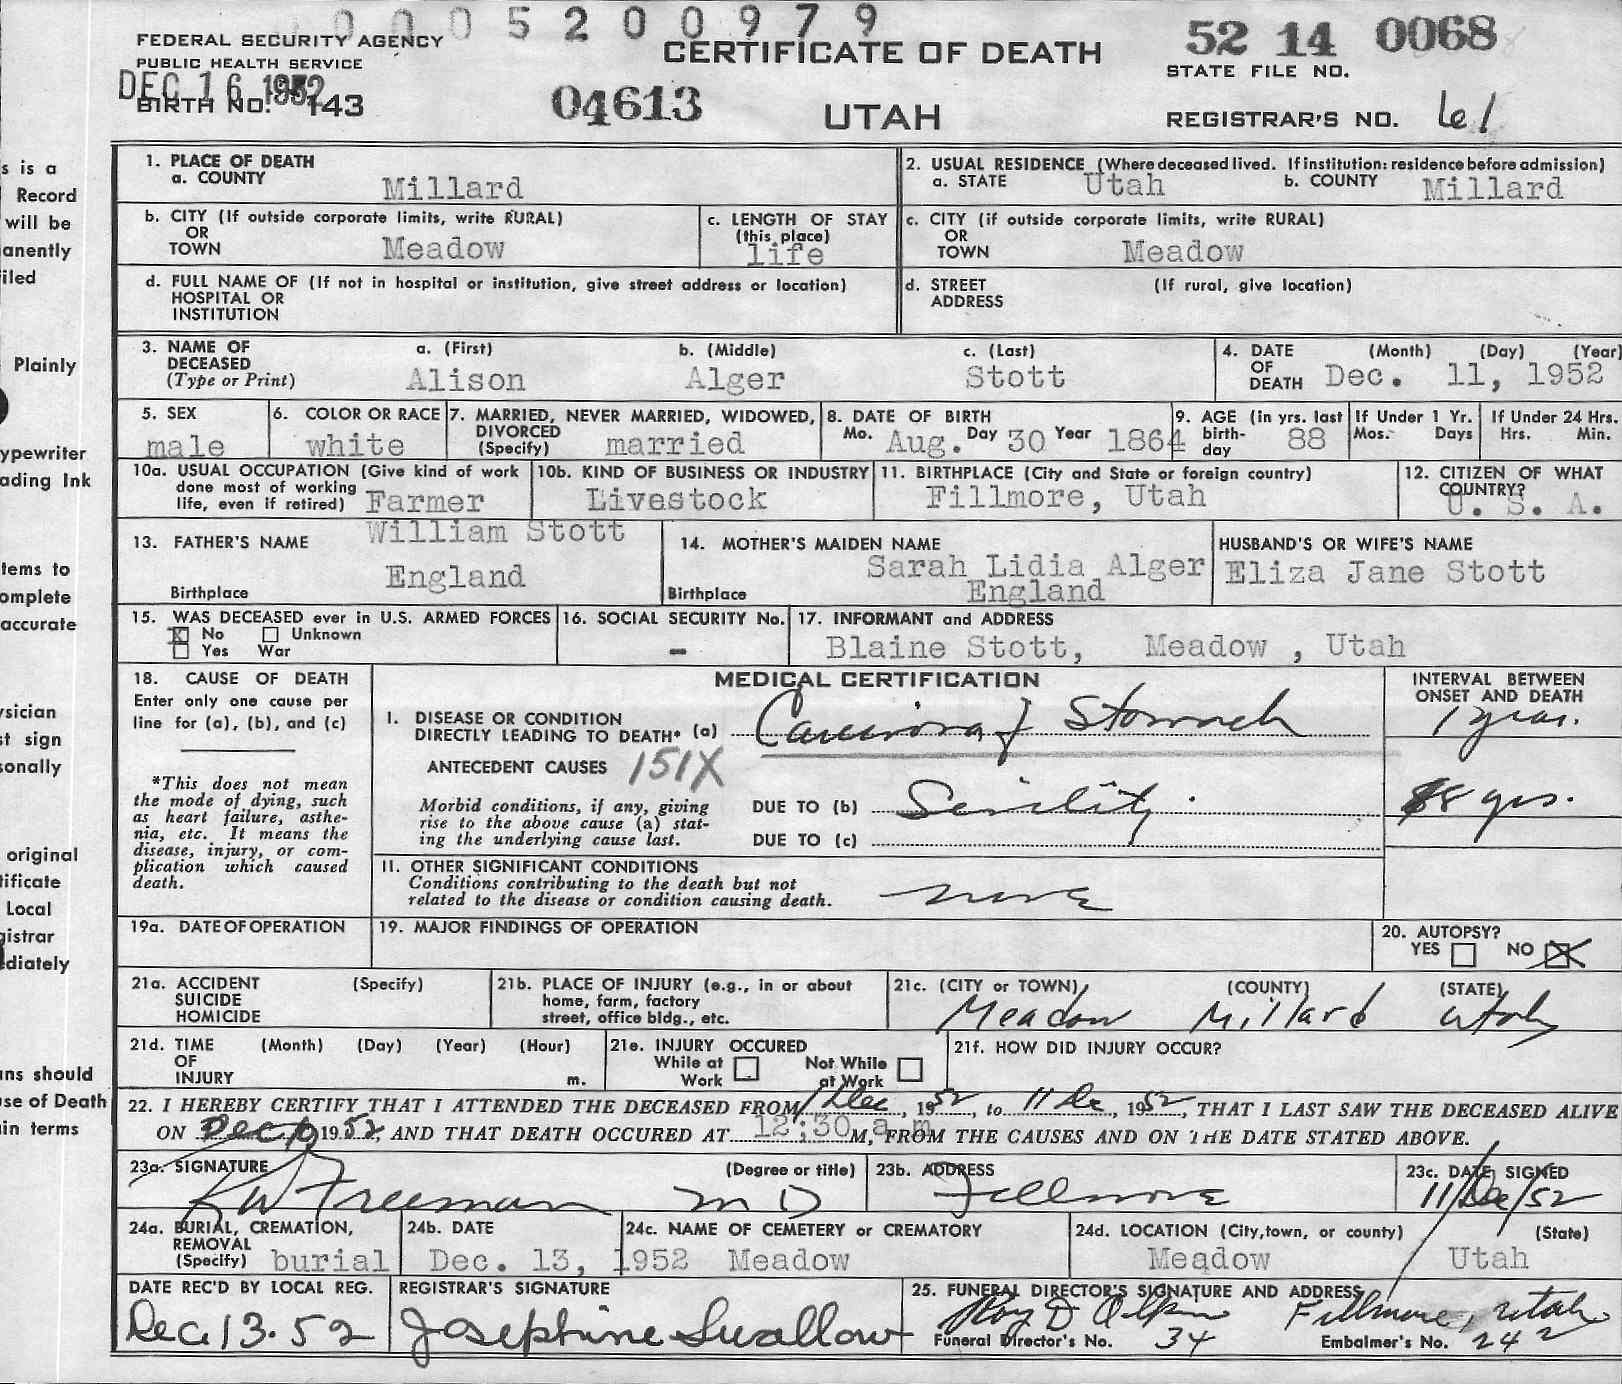 0 0 0 5 2 0 0 9 7 9
FEDERAL SECURITY AGENCY
PUBLIC HEALTH SERVICE
CERTIFICATE OF DEATH
52 14 0068
STATE FILE NO.
DEC 16 1952
BIRTH NO. 143
04613
UTAH
REGISTRAR'S NO. 61
s is a
Record
will be
anently
iled
Plainly
ypewriter
ading Ink
tems to
omplete
accurate
ysician
st sign
sonally
original
tificate
Local
gistrar
ediately
ans should
use of Death
in terms
1. PLACE OF DEATH
a. COUNTY Millard
2. USUAL RESIDENCE (Where deceased lived. If institution: residence before admission)
a. STATE Utah b. COUNTY Millard
b. CITY (If outside corporate limits, write RURAL)
OR
TOWN Meadow
c. LENGTH OF STAY
(this place)
life
c. CITY (if outside corporate limits, write RURAL)
OR
TOWN Meadow
d. FULL NAME OF (If not in hospital or institution, give street address or location)
HOSPITAL OR
INSTITUTION
d. STREET (If rural, give location)
ADDRESS
3. NAME OF DECEASED (Type or Print)
a. (First) b. (Middle) c. (Last)
Alison Alger Stott
4. DATE OF DEATH (Month) (Day) (Year)
Dec. 11, 1952
5. SEX
male
6. COLOR OR RACE
white
7. MARRIED, NEVER MARRIED, WIDOWED,
DIVORCED
(Specify) married
8. DATE OF BIRTH
Mo. Aug. Day 30 Year 1864
9. AGE (in yrs. last
birth-
day 88
If Under 1 Yr.
Mos. Days
If Under 24 Hrs.
Hrs. Min.
10a. USUAL OCCUPATION (Give kind of work
done most of working
life, even if retired) Farmer
10b. KIND OF BUSINESS OR INDUSTRY
Livestock
11. BIRTHPLACE (City and State or foreign country)
Fillmore, Utah
12. CITIZEN OF WHAT
COUNTRY?
U. S. A.
13. FATHER'S NAME William Stott
Birthplace England
14. MOTHER'S MAIDEN NAME
Sarah Lidia Alger
Birthplace England
HUSBAND'S OR WIFE'S NAME
Eliza Jane Stott
15. WAS DECEASED ever in U.S. ARMED FORCES
x No Unknown
Yes War
16. SOCIAL SECURITY No.
-
17. INFORMANT and ADDRESS
Blaine Stott, Meadow , Utah
18. CAUSE OF DEATH
Enter only one cause per
line for (a), (b), and (c)
*This does not mean
the mode of dying, such
as heart failure, asthe-
nia, etc. It means the
disease, injury, or com-
plication which caused
death.
MEDICAL CERTIFICATION
INTERVAL BETWEEN
ONSET AND DEATH
I. DISEASE OR CONDITION
DIRECTLY LEADING TO DEATH* (a) Carcinoma of Stomach 1 year.
ANTECEDENT CAUSES 151X
Morbid conditions, if any, giving
rise to the above cause (a) stat-
ing the underlying cause last.
DUE TO (b) Senility. 8 yrs.
DUE TO (c)
II. OTHER SIGNIFICANT CONDITIONS
Conditions contributing to the death but not
related to the disease or condition causing death. none
19a. DATE OF OPERATION
19. MAJOR FINDINGS OF OPERATION
20. AUTOPSY?
YES NO X
21a. ACCIDENT (Specify)
SUICIDE
HOMICIDE
21b. PLACE OF INJURY (e.g., in or about
home, farm, factory
street, office bldg., etc.
21c. (CITY or TOWN) (COUNTY) (STATE)
Meadow Millard Utah
21d. TIME (Month) (Day) (Year) (Hour)
OF
INJURY m.
21e. INJURY OCCURED
While at Not While
Work at Work
21f. HOW DID INJURY OCCUR?
22. I HEREBY CERTIFY THAT I ATTENDED THE DECEASED FROM 1 Dec, 1952, to 11 De, 1952, THAT I LAST SAW THE DECEASED ALIVE
ON Dec 10 1952, AND THAT DEATH OCCURED AT 12:30 a.m M, FROM THE CAUSES AND ON THE DATE STATED ABOVE.
23a. SIGNATURE (Degree or title)
KW Freeman MD
23b. ADDRESS
Fillmore
23c. DATE SIGNED
11/Dec/52
24a. BURIAL, CREMATION,
REMOVAL
(Specify) burial
24b. DATE
Dec. 13, 1952
24c. NAME OF CEMETERY or CREMATORY
Meadow
24d. LOCATION (City, town, or county) (State)
Meadow Utah
DATE REC'D BY LOCAL REG.
Dec. 13. 52
REGISTRAR'S SIGNATURE
Josephine Swallow
25. FUNERAL DIRECTOR'S SIGNATURE AND ADDRESS
Roy D Olpin Fillmore, Utah
Funeral Director's No. 34 Embalmer's No. 242